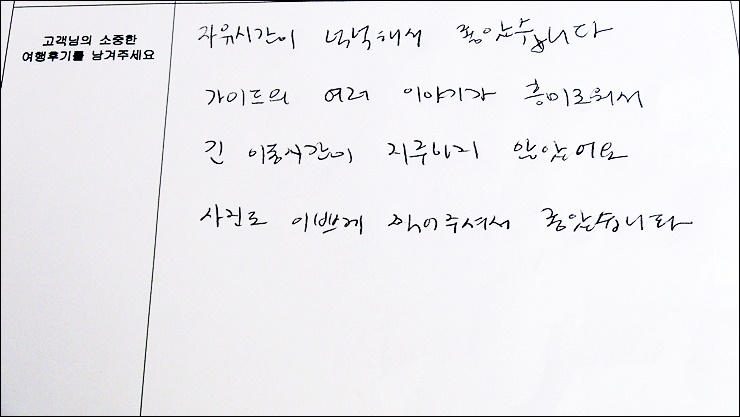 고객님의 소중한
여행후기를 남겨주세요
자유시간이 넉넉해서 좋았습니다
가이드의 여러 이야기가 흥미로워서
긴 이동시간이 지루하지 않았어요
사진도 이쁘게 찍어주셔서 좋았습니다